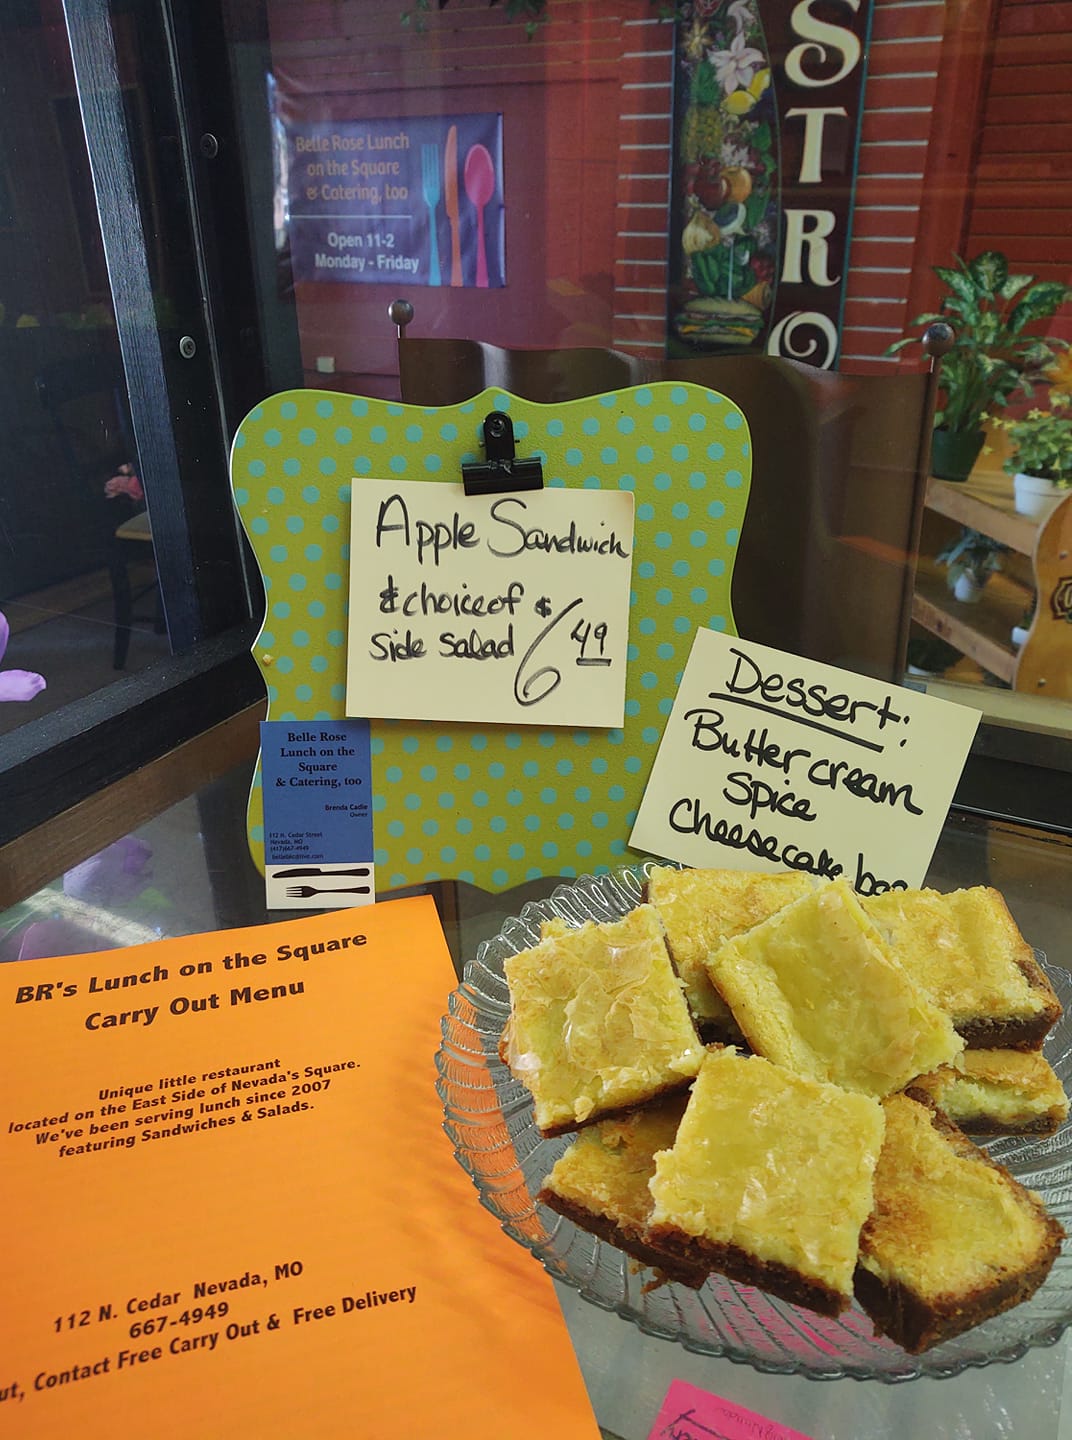 STRO
Belle Rose Lunch
on the Square
& Catering, too
Open 11-2
Monday - Friday
Apple Sandwich
& choice of $6 49
side salad
Dessert:
Butter cream
Spice
Cheesecake
Belle Rose
Lunch on the
Square
& Catering, too
Brenda Cadle
Owner
112 N. Cedar Street
Nevada, MO
(417)667-4949
BR's Lunch on the Square
Carry Out Menu
Unique little restaurant
located on the East Side of Nevada's Square.
We've been serving lunch since 2007
featuring Sandwiches & Salads.
112 N. Cedar Nevada, MO
667-4949
Contact Free Carry Out & Free Delivery